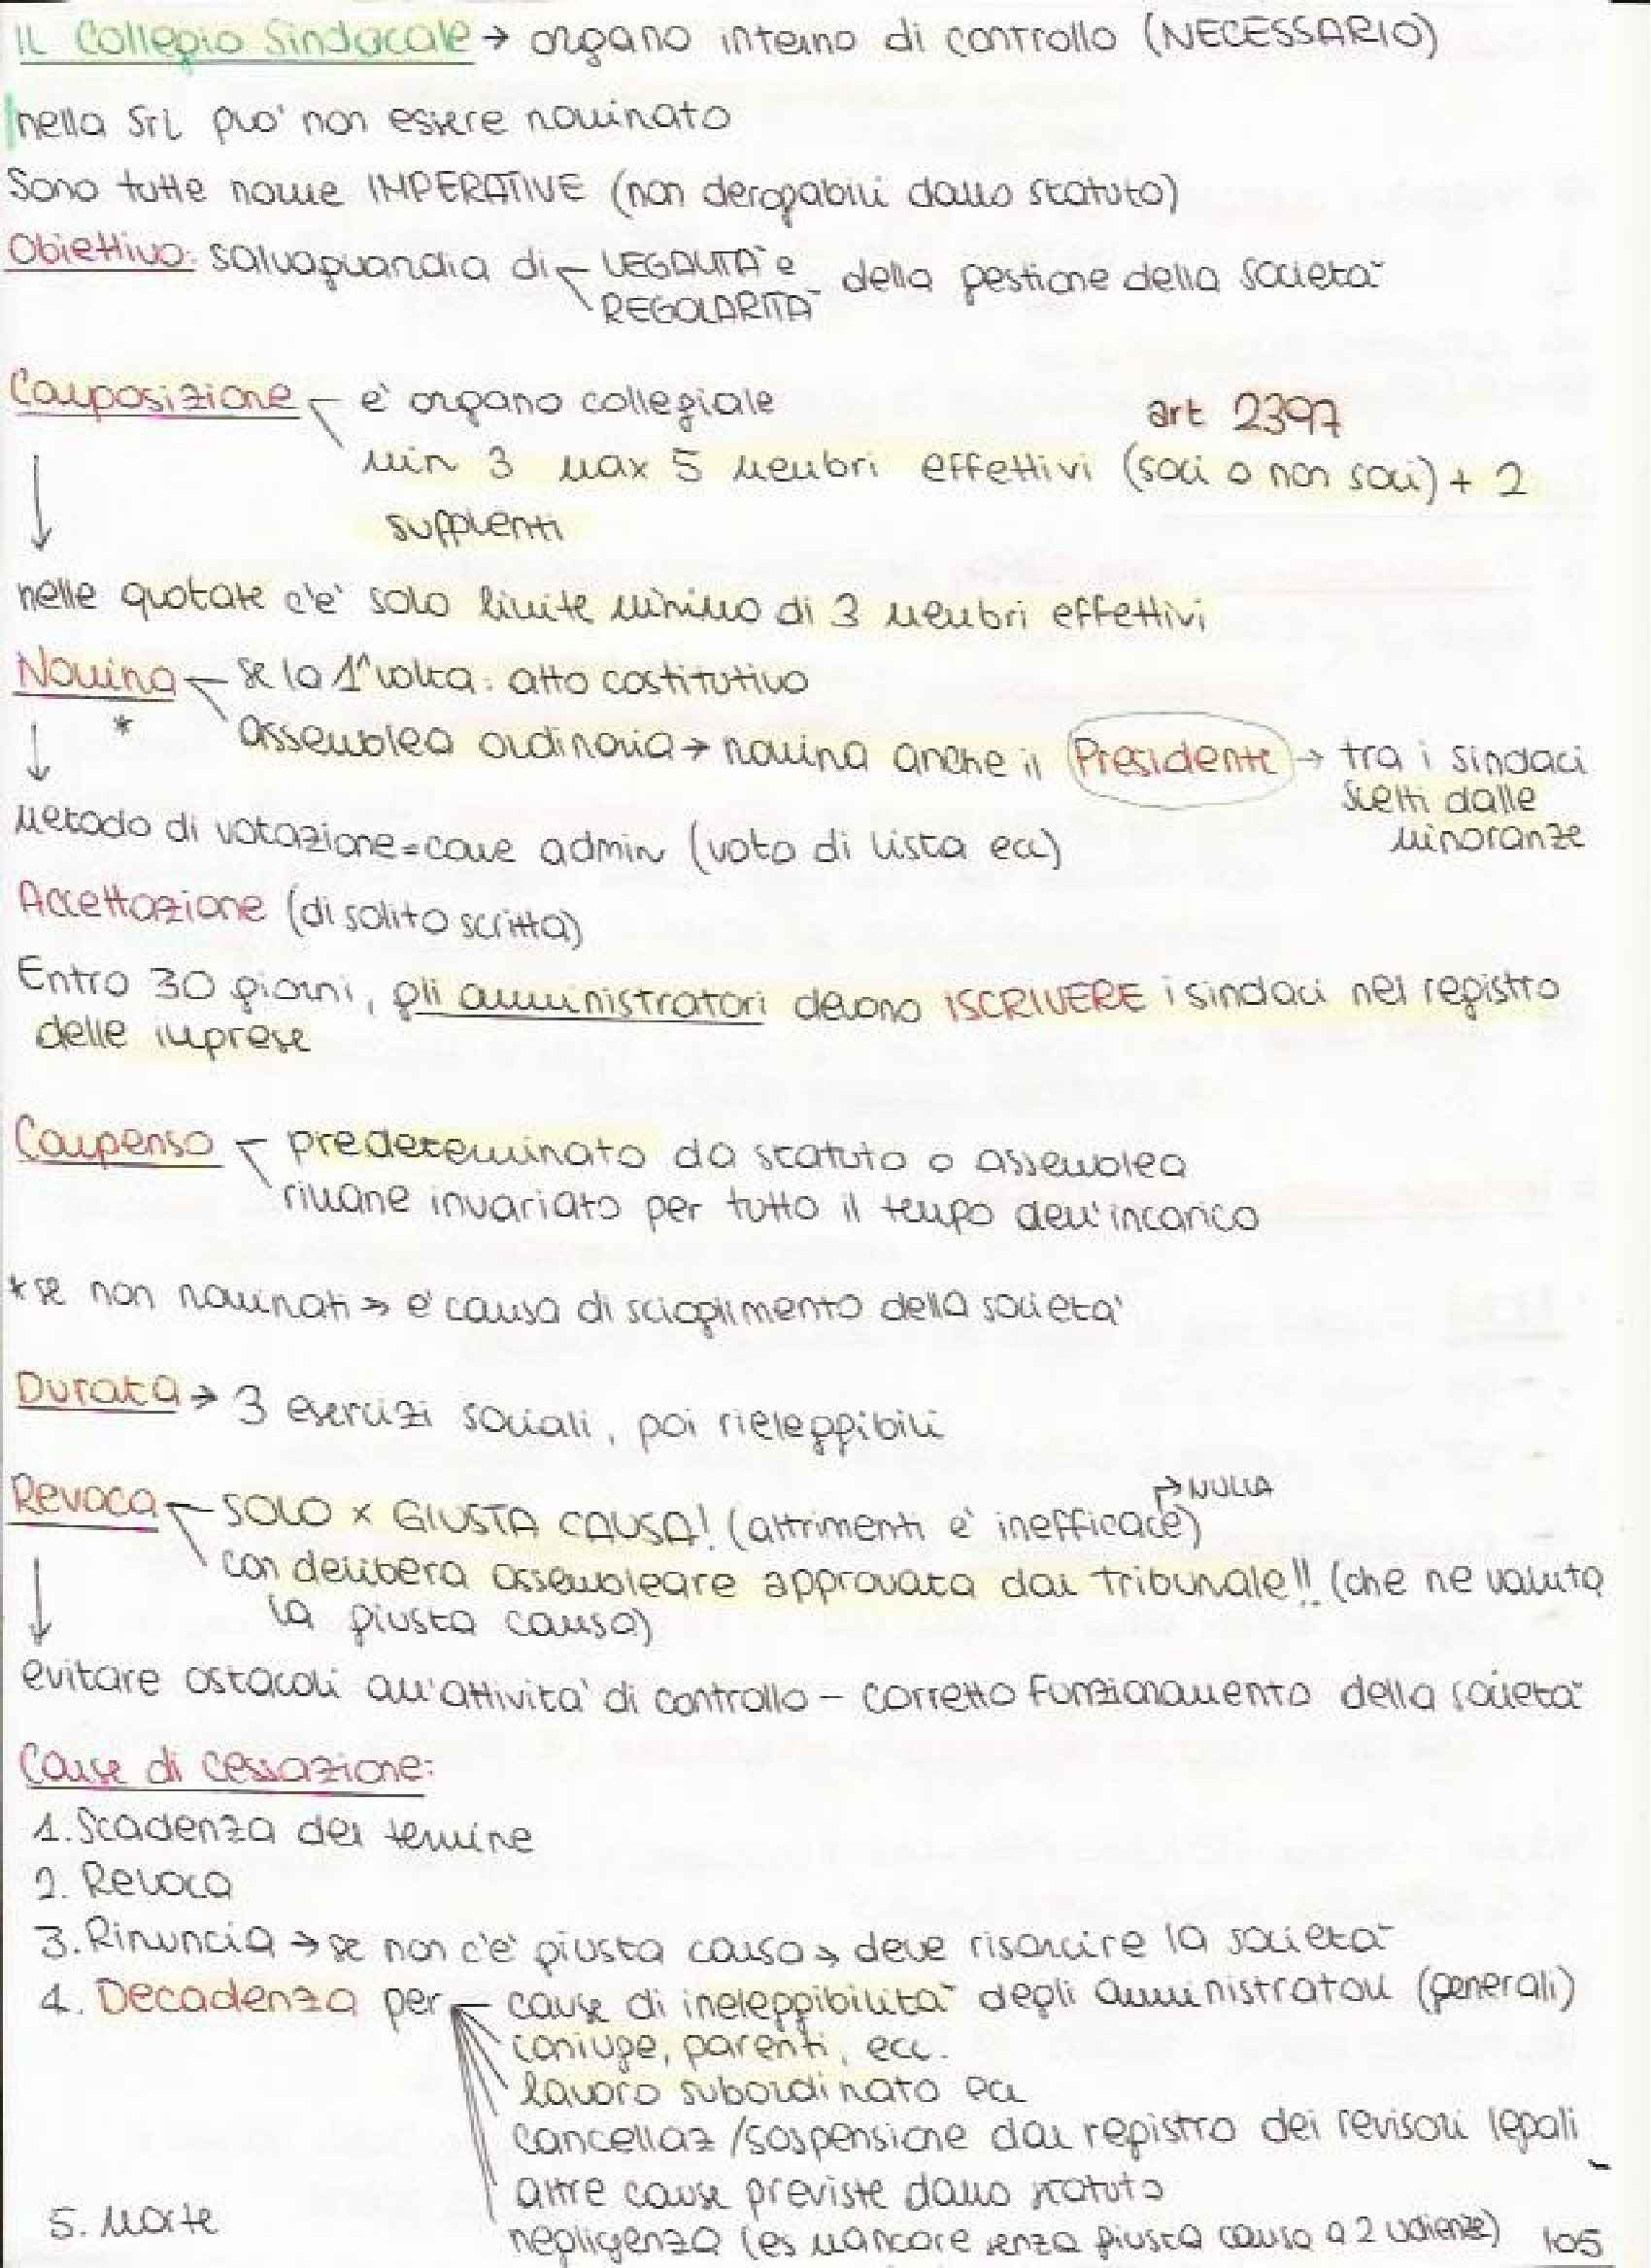 Il Collegio Sindacale → organo interno di controllo (NECESSARIO)
nella Srl puo' non essere nominato
Sono tutte norme IMPERATIVE (non derogabili dallo statuto)
Obiettivo: salvaguardia di LEGALITA' e REGOLARITA' della gestione della società
Composizione - è organo collegiale
art 2397
min 3 max 5 membri effettivi (soci o non soci) + 2
supplenti
↓
nelle quotate c'è solo limite minimo di 3 membri effettivi
Nomina - se la 1ª volta: atto costitutivo
* assemblea ordinaria → nomina anche il Presidente → tra i sindaci
scelti dalle
minoranze
↓
metodo di votazione = come admin (voto di lista ecc)
Accettazione (di solito scritta)
Entro 30 giorni, gli amministratori devono ISCRIVERE i sindaci nel registro
delle imprese
Compenso - predeterminato da statuto o assemblea
rimane invariato per tutto il tempo dell'incarico
* se non nominati → è causa di scioglimento della società
Durata → 3 esercizi sociali, poi rieleggibili
Revoca - SOLO x GIUSTA CAUSA! (altrimenti è inefficace) → NULLA
con delibera assembleare approvata dal tribunale!! (che ne valuta
la giusta causa)
↓
evitare ostacoli all'attività di controllo - corretto funzionamento della società
Cause di cessazione:
1. Scadenza del termine
2. Revoca
3. Rinuncia → se non c'è giusta causa → deve risarcire la società
4. Decadenza per - cause di ineleggibilità degli amministratori (generali)
coniuge, parenti, ecc.
lavoro subordinato ecc
cancellaz/sospensione dal registro dei revisori legali
altre cause previste dallo statuto
negligenza (es mancare senza giusta causa a 2 udienze)
5. Morte
105